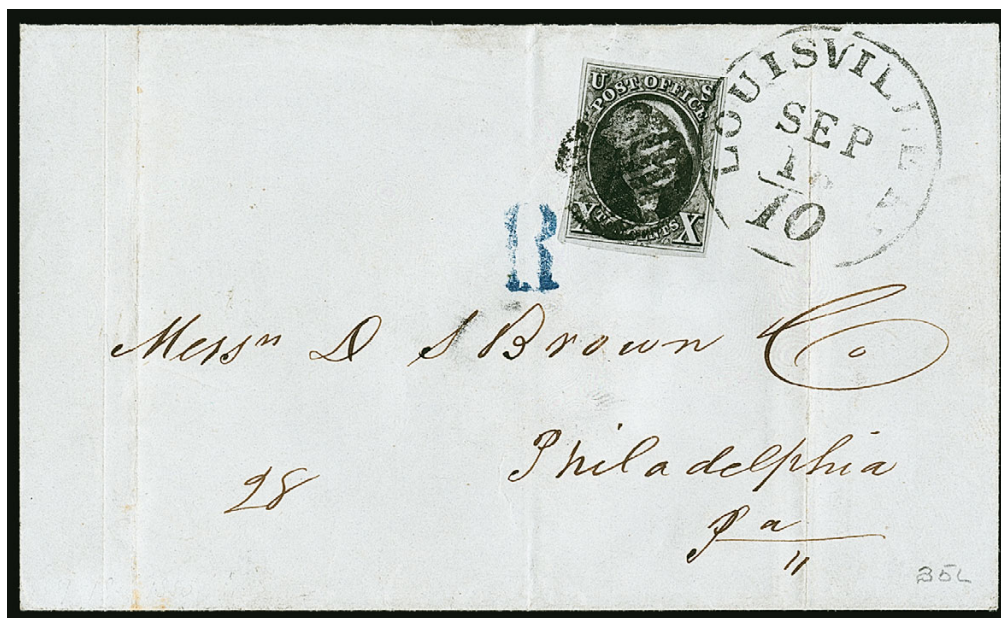 U S
POST OFFICE
X X
LOUISVILLE KY
SEP
10
R
Messrs D S Brown & Co
Philadelphia
Pa
28
35L